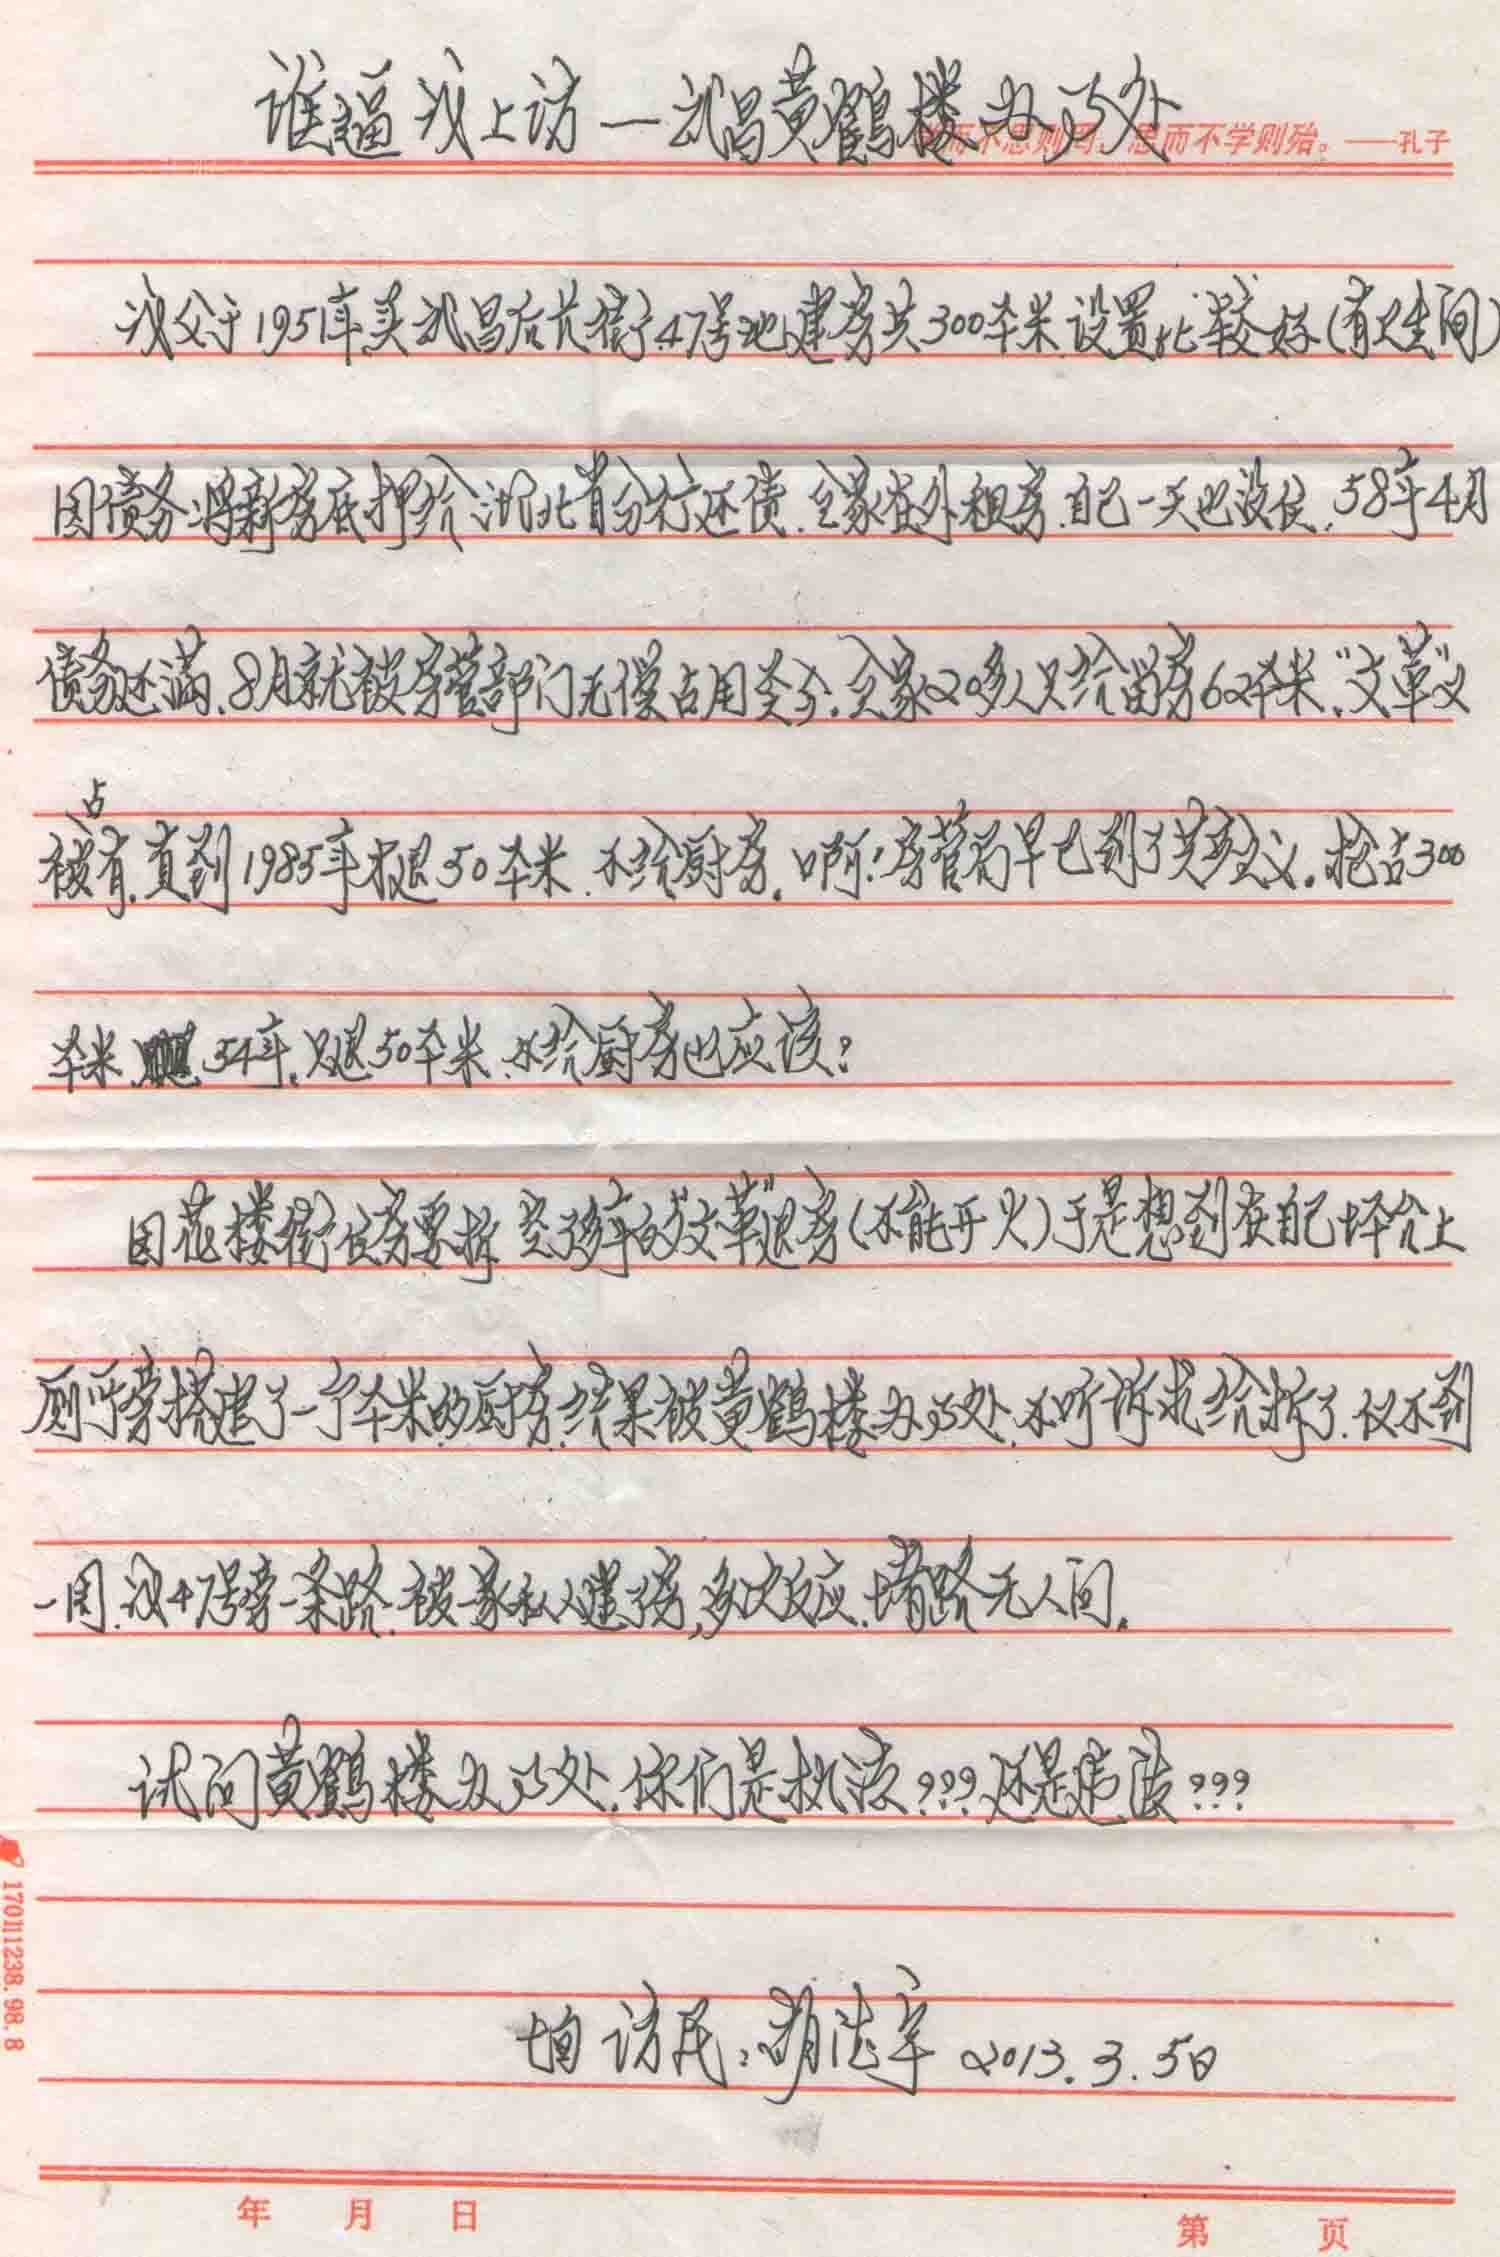 谁逼我上访—武昌黄鹤楼办了处
而不思则罔,思而不学则殆。——孔子
我父于1951年买武昌后长街47号地建房共300平米.设置比较好(有卫生间)
因债务将新房底押给湖北省分行还债.全家在外租房.自己一天也没住.58年4月
债务还满.8月就被房管部门无偿占用至今.全家20多人只给留房62平米."文革"又
占
被有.直到1985年才退50平米.不给厨房.啊!房管局早已到了共产主义.抢占300
平米.34年.只退50平米.不给厨房也应该?
因花楼街住房要拆."文革"退房(不能开火)于是想到在自己上
厕所旁搭建了一个平米的厨房.结果被黄鹤楼办了处.不听诉求给拆了.仅不到
一周.我47号旁一条路.被一家私人建了房,多次反应.堵路无人问.
试问黄鹤楼办了处.你们是执法???还是违法???
访民:胡 2013.3.5日
年 月 日
第 页
17011238.98.8